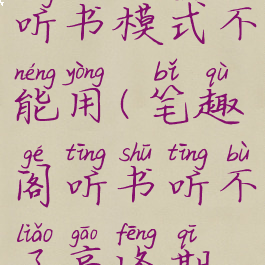 听书模式不
néng yòng bǐ qù
能用(笔趣
gé tīng shū tīng bù
阁听书听不
liǎo gāo fēng qī
了高峰期